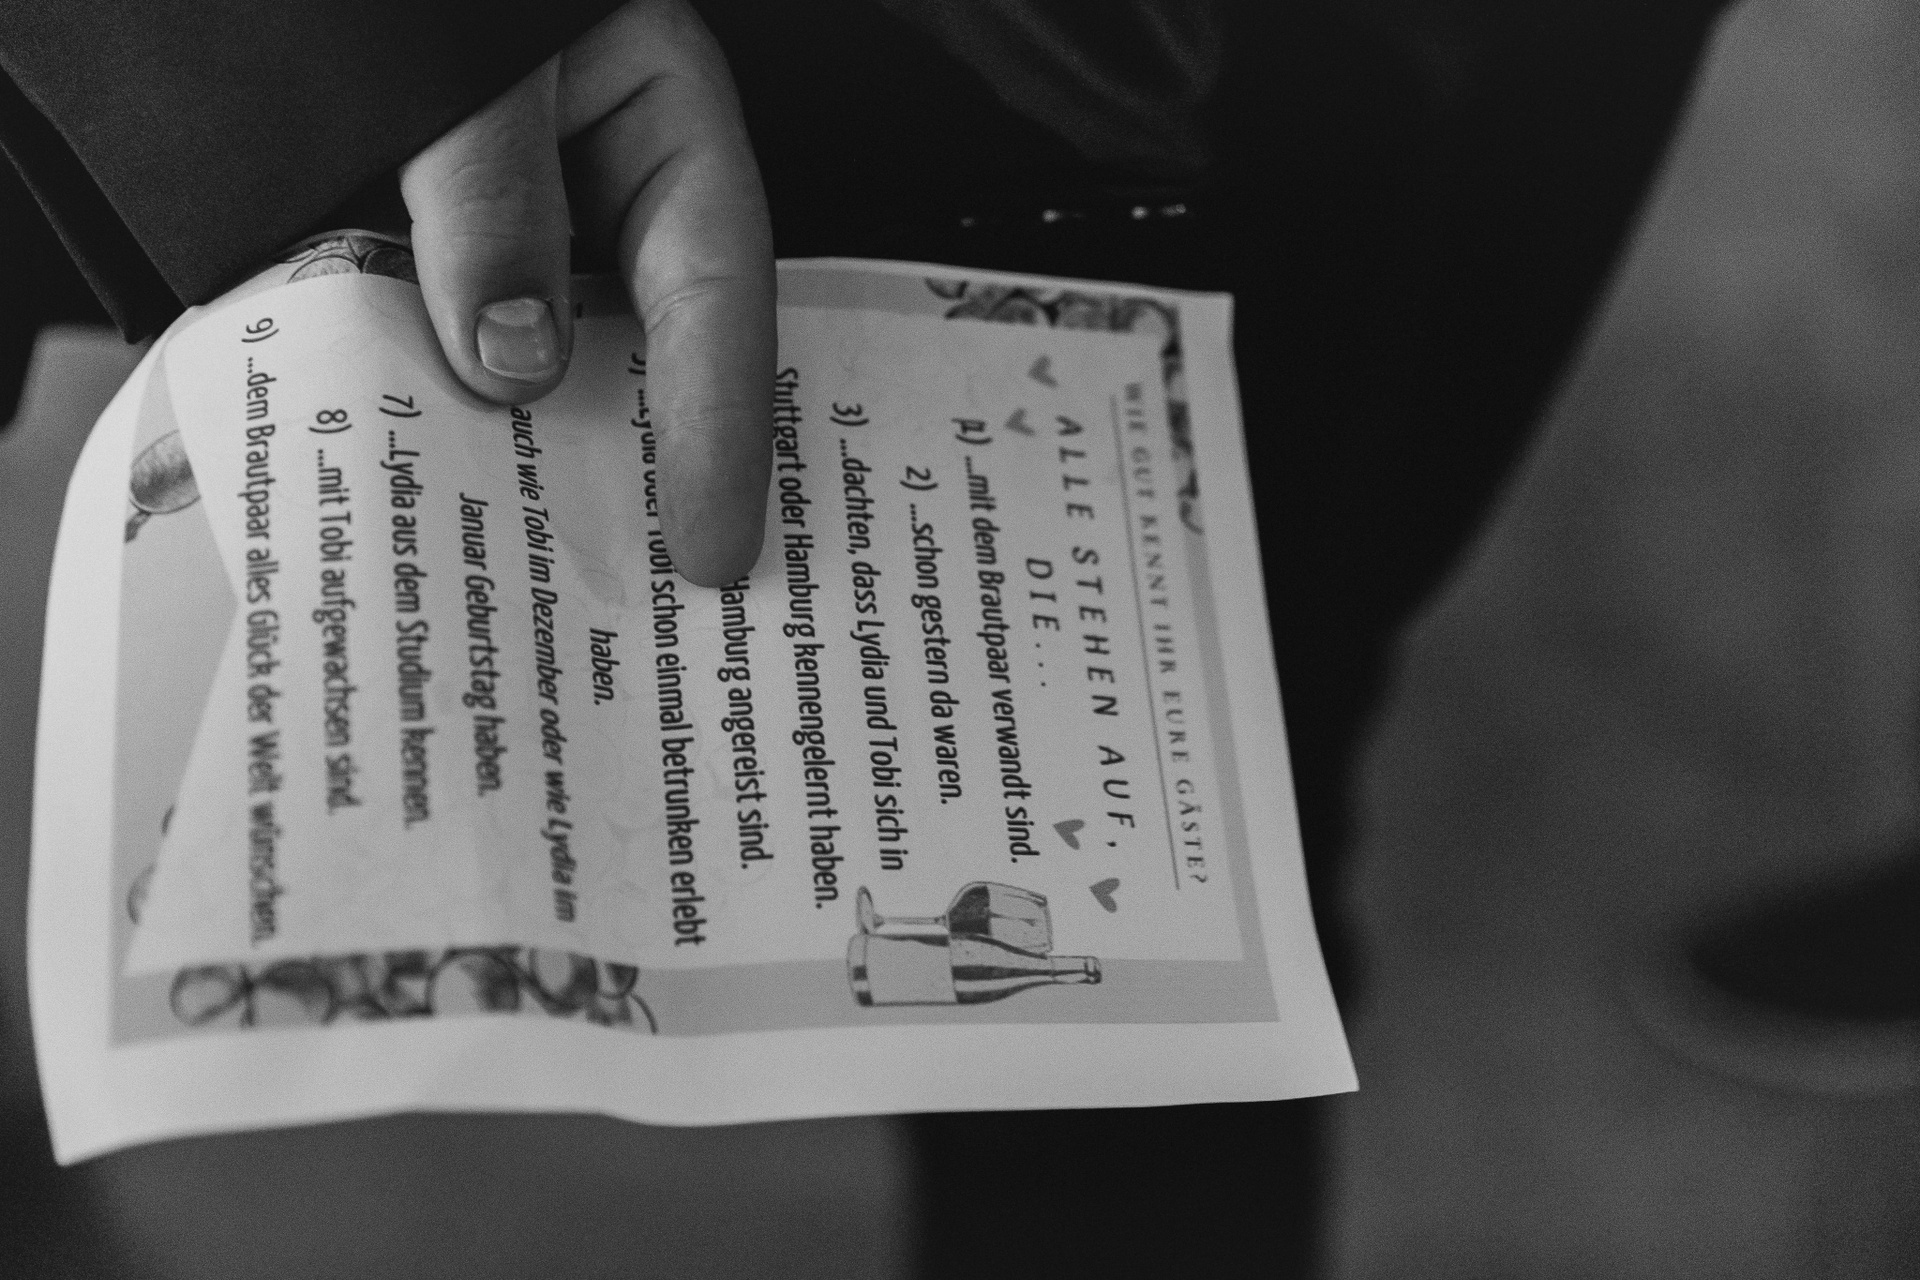 WIE GUT KENNT IHR EURE GÄSTE?
ALLE STEHEN AUF,
DIE...
1) ...mit dem Brautpaar verwandt sind.
2) ...schon gestern da waren.
3) ...dachten, dass Lydia und Tobi sich in
Stuttgart oder Hamburg kennengelernt haben.
Hamburg angereist sind.
schon einmal betrunken erlebt
haben.
auch wie Tobi im Dezember oder wie Lydia im
Januar Geburtstag haben.
7) ...Lydia aus dem Studium kennen.
8) ...mit Tobi aufgewachsen sind.
9) ...dem Brautpaar alles Glück der Welt wünschen.